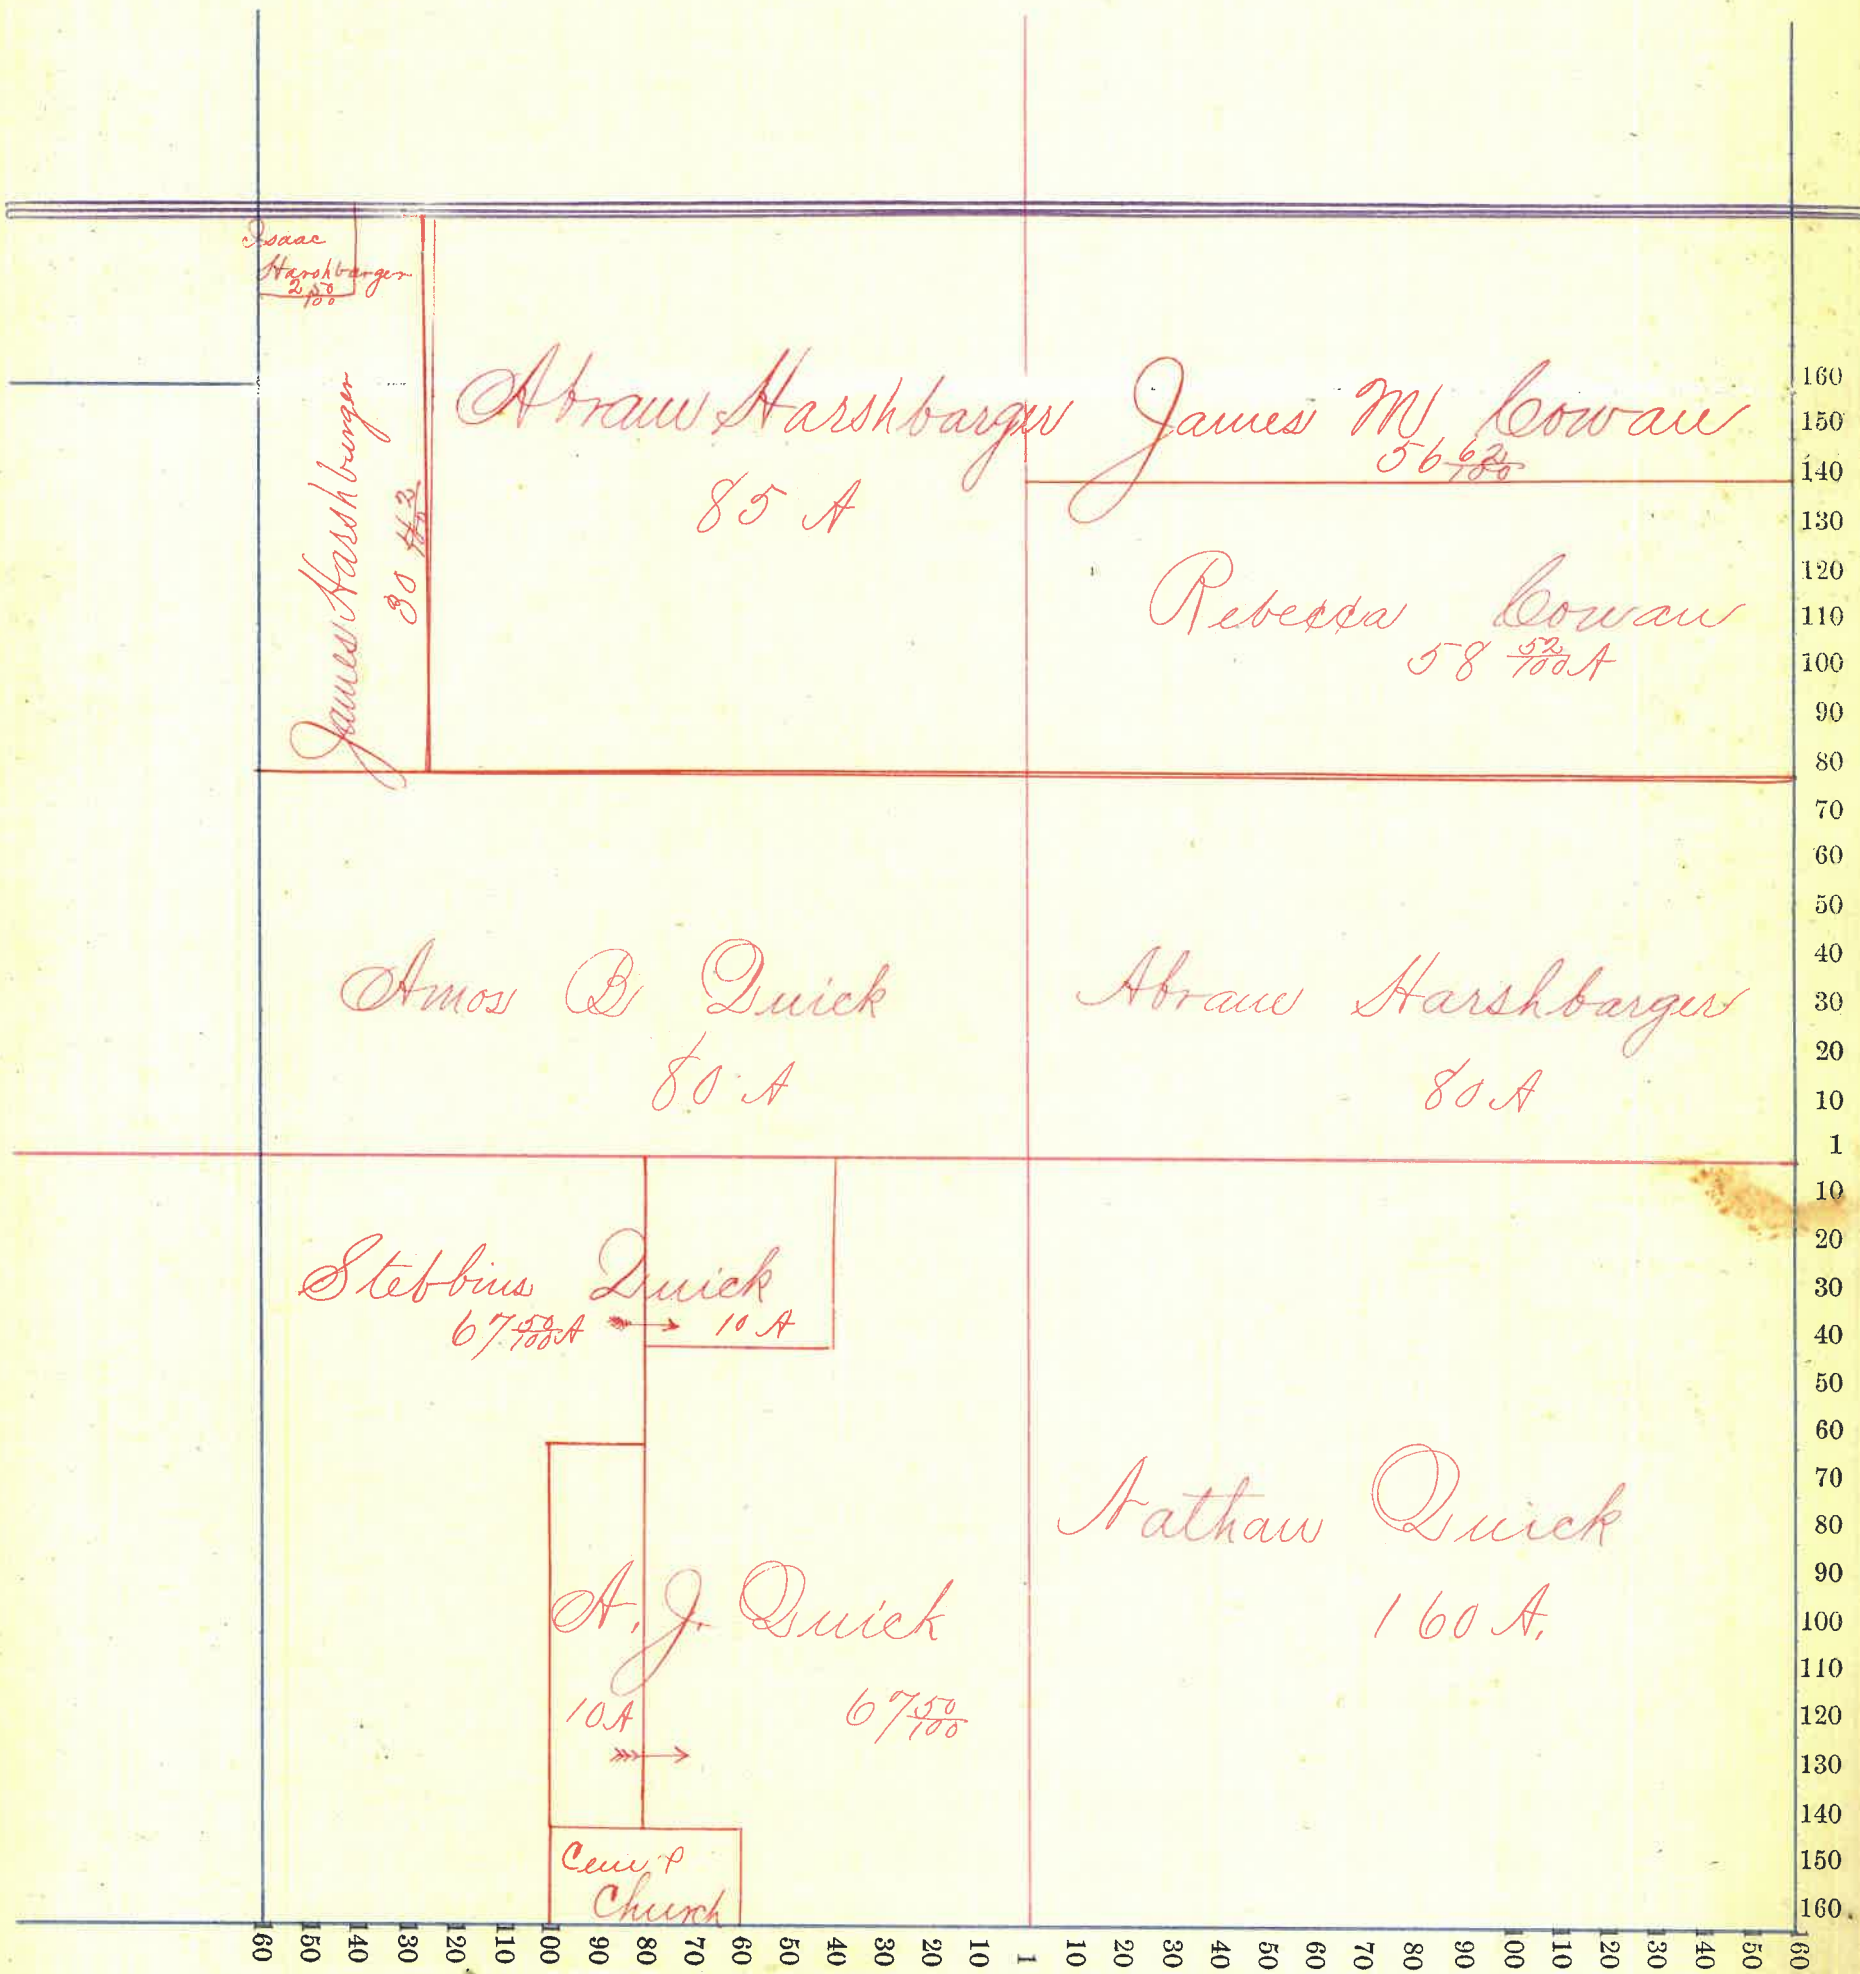 Isaac
Harshbarger
2 50/100
James Harshburger
30 42/100
Abram Harshbarger
85 A
James M Cowan
56 62/100
Rebecca Cowan
58 52/100 A
Amos B Quick
80 A
Abram Harshbarger
80 A
Stebbins Quick
67 50/100 A
10 A
A. J. Quick
10 A
67 50/100
Nathan Quick
160 A.
Cem &
Church
160
150
140
130
120
110
100
90
80
70
60
50
40
30
20
10
1
10
20
30
40
50
60
70
80
90
100
110
120
130
140
150
160
160 150 140 130 120 110 100 90 80 70 60 50 40 30 20 10 1 10 20 30 40 50 60 70 80 90 100 110 120 130 140 150 160